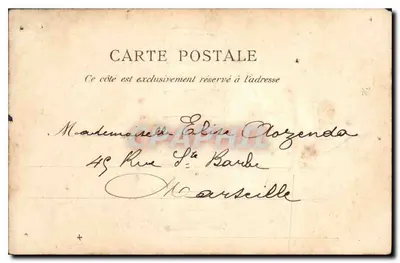 CARTE POSTALE
Ce côté est exclusivement réservé à l'adresse
Mademoiselle Elisa Aozenda
45 Rue Ste Barbe
Marseille